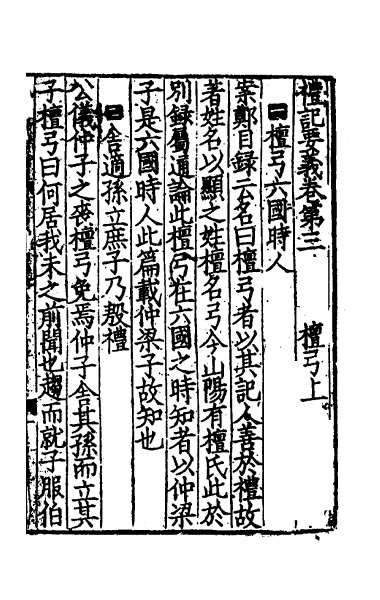 禮記要義卷第三　　檀弓上
一檀弓六國時人
案鄭目録云名曰檀弓者以其記人善於禮故
著姓名以顯之姓檀名弓今山陽有檀氏此於
别録屬通論此檀弓在六國之時知者以仲梁
子是六國時人此篇載仲梁子故知也
二舍適孫立庶子乃殷禮
公儀仲子之喪檀弓免焉仲子舍其孫而立其
子檀弓曰何居我未之前聞也趨而就子服伯